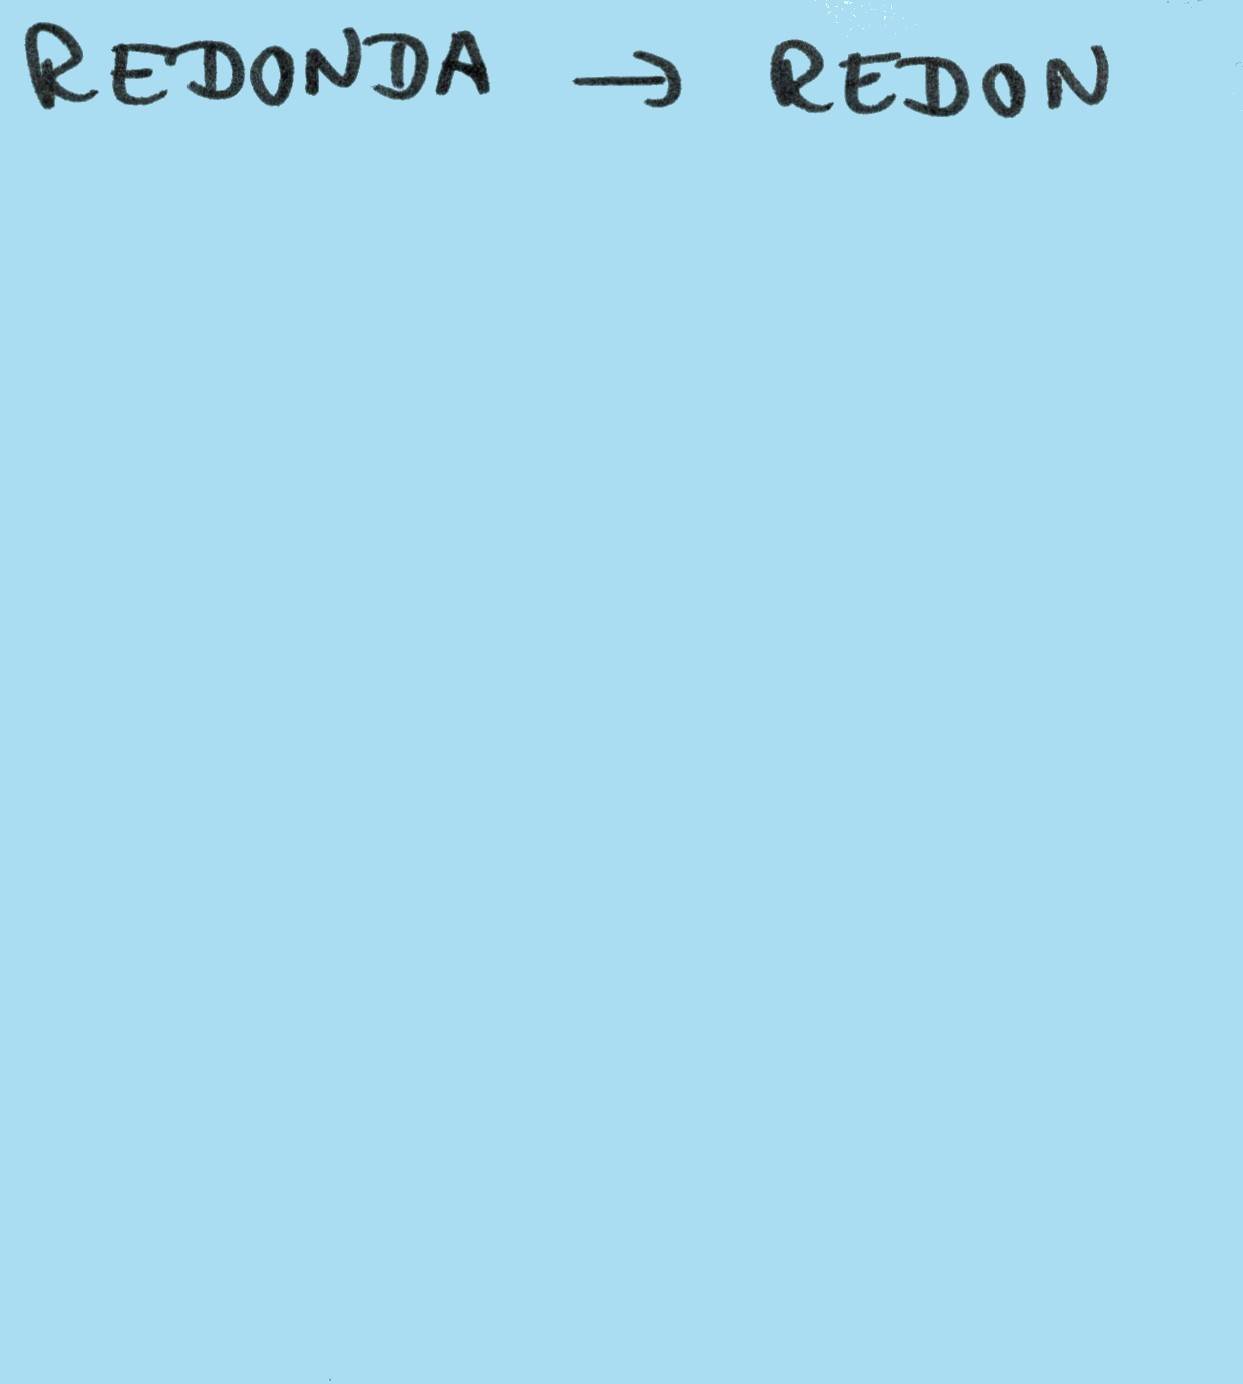 REDONDA → REDON